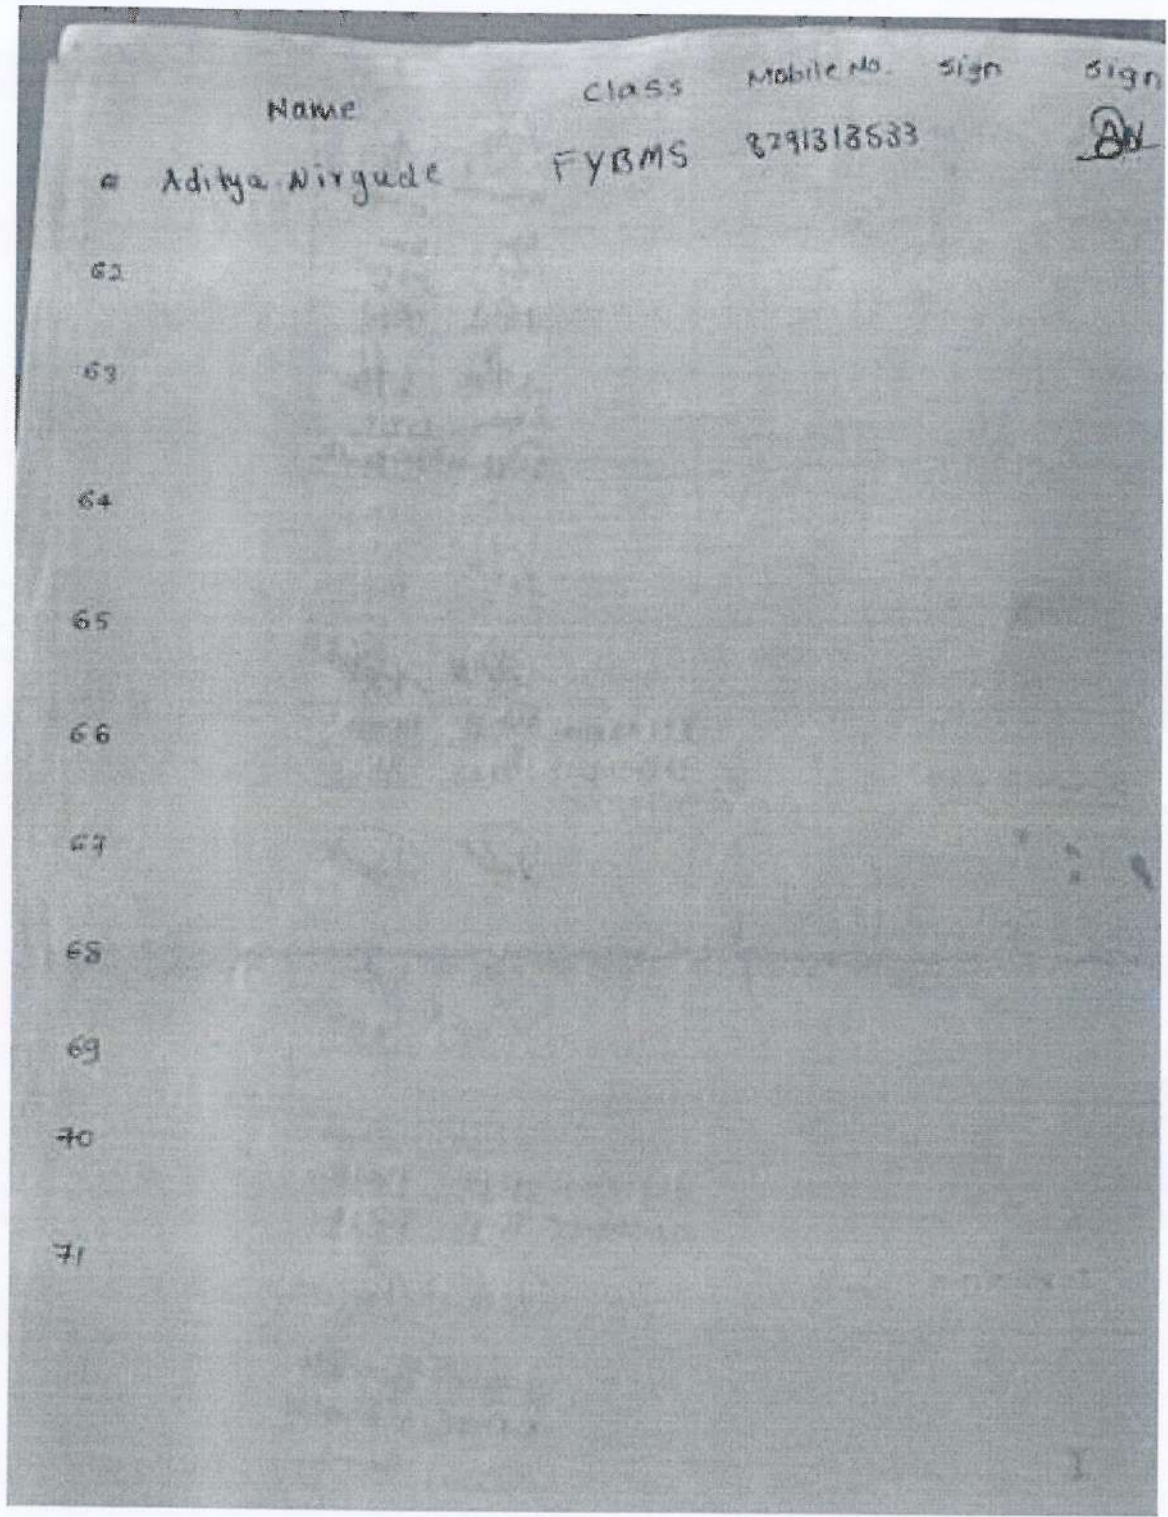 Name Class Mobile No. Sign Sign
Aditya Nirgude FYBMS 8291313533 AN
62
63
64
65
66
67
68
69
70
71